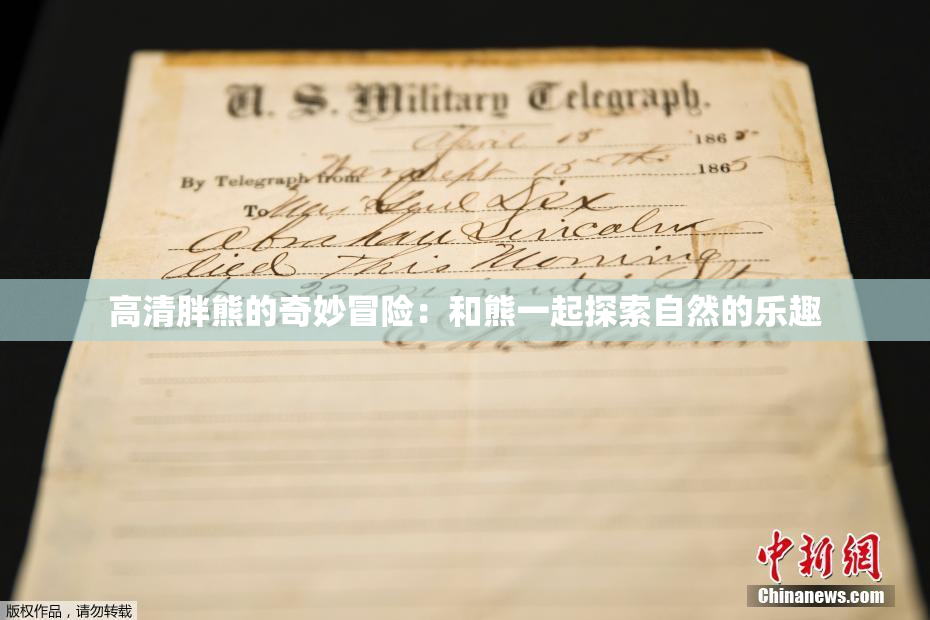 U. S. Military Telegraph.
April 15 1865
By Telegraph from War Dept 15th 1865
To Maj Genl Dix
Abraham Lincoln
died this Morning
22 minutes after
高清胖熊的奇妙冒险：和熊一起探索自然的乐趣
E. M. Stanton
中新网
Chinanews.com
版权作品，请勿转载